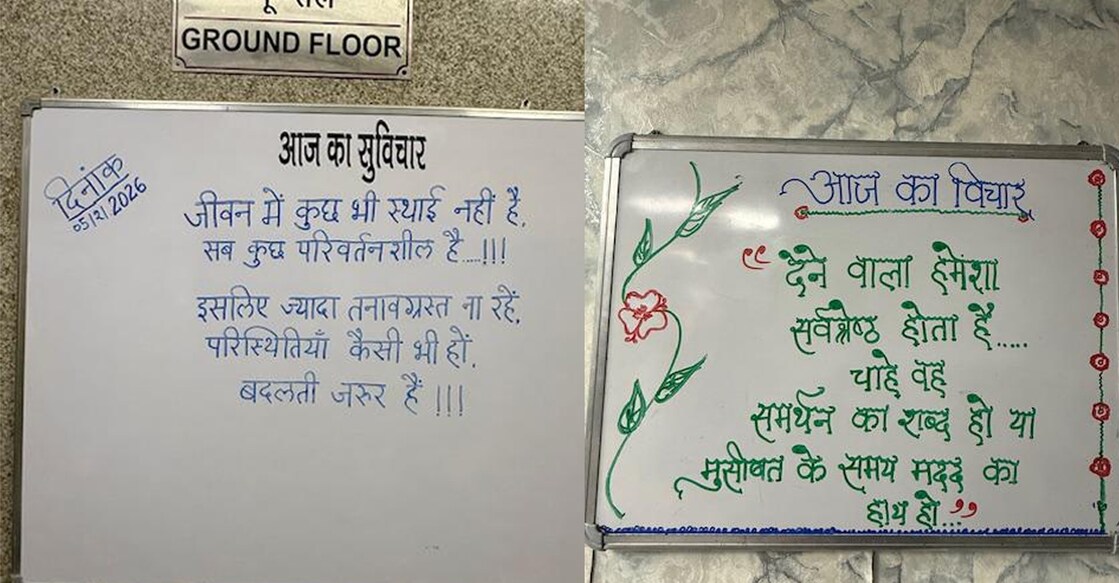 GROUND FLOOR
आज का सुविचार
दिनांक
05/2/2026
जीवन में कुछ भी स्थाई नहीं है,
सब कुछ परिवर्तनशील है....!!!
इसलिए ज्यादा तनावग्रस्त ना रहें,
परिस्थितियाँ कैसी भी हों,
बदलती जरुर हैं !!!
आज का विचार
“देने वाला हमेशा
सर्वश्रेष्ठ होता है.....
चाहे वह
समर्थन का शब्द हो या
मुसीबत के समय मदद का
हाथ हो...”